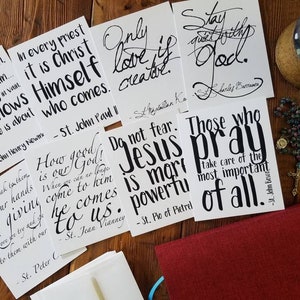 In every priest
it is Christ
Himself
who comes.
- St. John Paul II
Only
love is
creator.
- St. Maximilian K
Stay
quiet with
God.
- St. Charles Borromeo
John Henry Newm
How good
is our God!
When we can no longer
come to him
he comes
to us.
- St. Jean Vianney
Do not fear.
Jesus
is more
powerful
- St. Pio of Pietrel
Those who
pray
take care of the
most important
of all.
- St. John
our hands
giving
- St. Peter